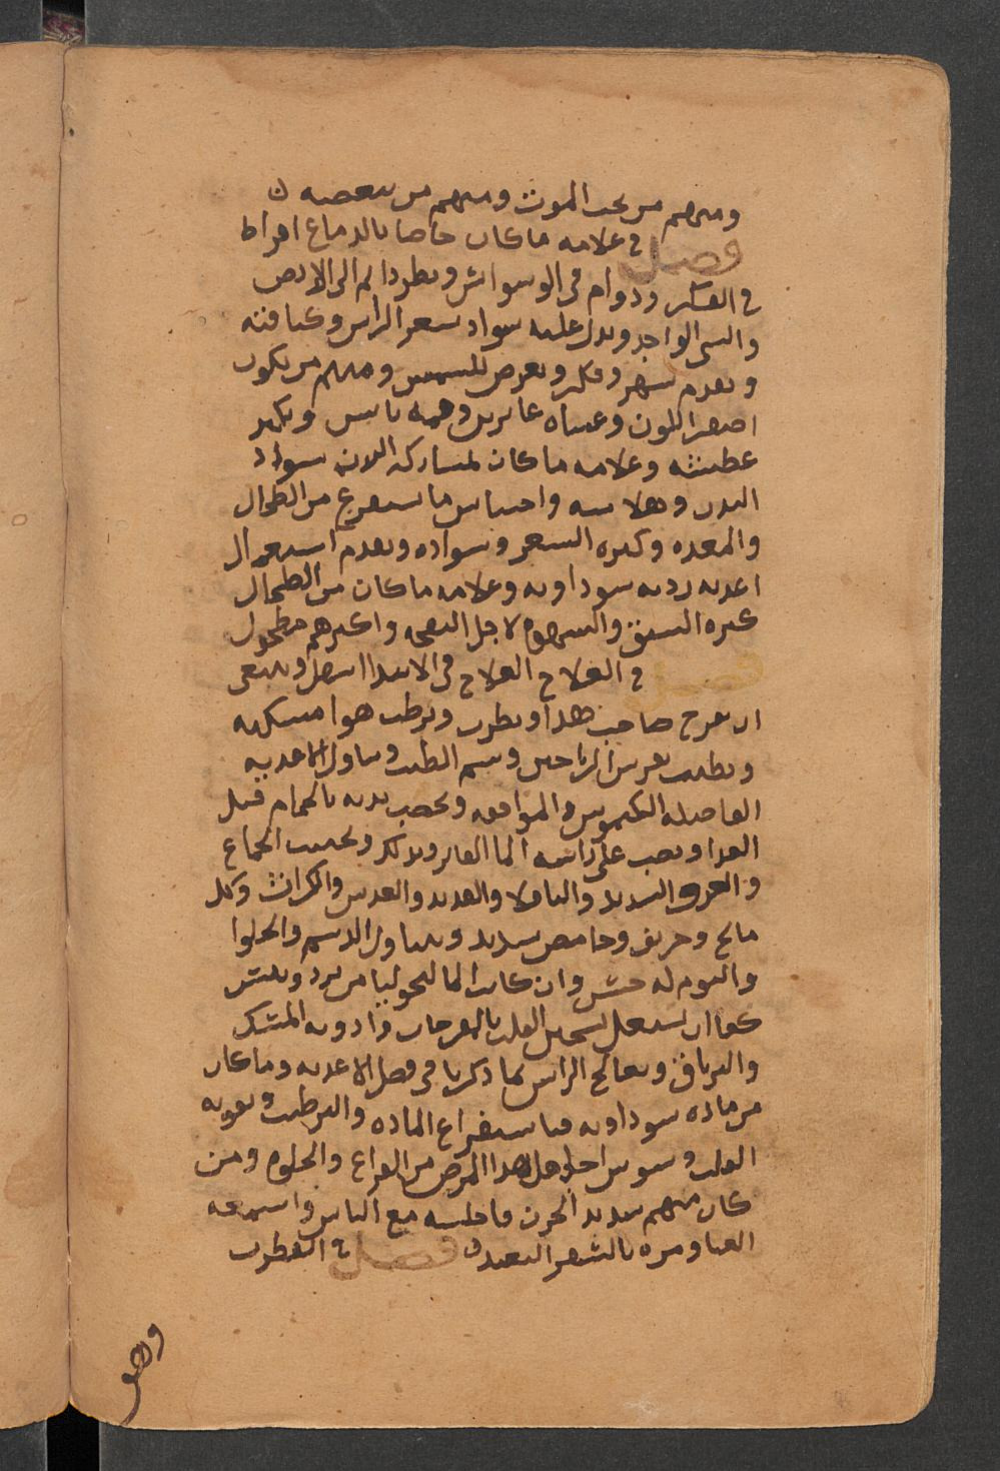 ومنهم من يحب الموت ومنهم من يبغضه
فصل في علامه ما كان خاصا بالدماغ افراط
في الفكر ودوام في الوسواس ونظر دايم الى الارض
والشي الواحد ويدل عليه سواد شعر الراس وكثافته
وتقدم سهر وفكر وتعرض للشمس ومنهم من يكون
اصفر اللون وعيناه غايرتين وفمه يابس ويكثر
عطشه وعلامه ما كان لمشاركه البدن سواد
البدن وهلاسه واحتباس ما يستفرغ من الطحال
والمعده وكثره الشعر وسواده وتقدم استعمال
اغديه رديه سوداويه وعلامه ما كان من الطحال
كثره الشبق والشهوه لاجل النفخه واكثرهم مطحول
فصل في العلاج العلاج في الابتدا اسهل وينبغي
ان يفرح صاحب هذا ويطرب ويرطب هوا مسكنه
ويطيب بفرش الرياحين وشم الطيب وتناول الاغديه
الفاضله الكيموس والموافقه ويخصب بدنه بالحمام قبل
الغدا ويصب على راسه الما الفاتر ويدلك ويجتنب الجماع
والعرق الشديد والباقلا والقديد والعدس والكراث وكل
مالح وحريف وحامض شديد ويتناول الدسم والحلوا
والنوم له حسن وان كانت المالنخوليا من برد ويبس
كفا ان يشتغل بتسخين القلب بالمفرحات وادويه المسك
والترياق ويعالج الراس بما ذكرنا في فصل الاغديه وما كان
من ماده سوداويه فباستفراغ الماده والترطيب وتقويه
القلب وسوس احوال اهل هذا المرض من الفراغ والخلوه ومن
كان منهم شديد الحزن فاجلسه مع الناس واسمعه
الغنا ومره بالسفر البعيد فصل في القطرب
وهو